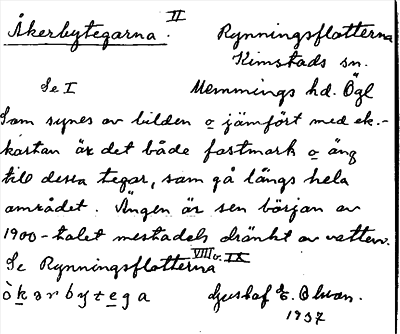 Åkerbytegarna. II Rynningsflotterna
Kimstads sn.
Se I Memmings hd. Ögl
Som synes av bilden o jämfört med ek.-
kartan är det både fastmark o äng
till dessa tegar, som gå längs hela
området. Ängen är sen början av
1900-talet mestadels dränkt av vatten.
Se Rynningsflotterna VIII o. IX
òkərbytega Gustaf E. Olson.
1937